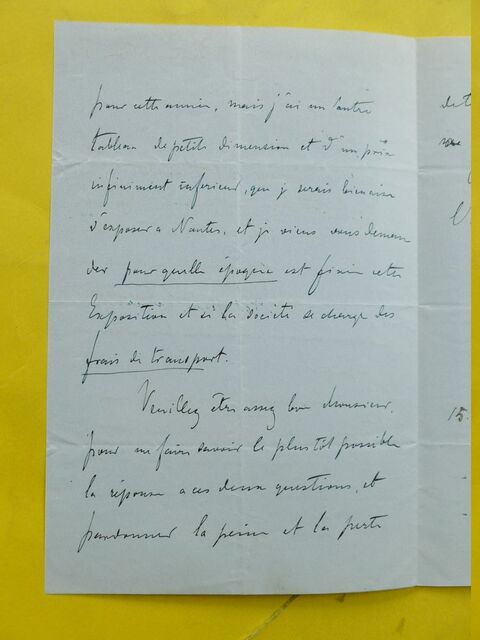 pour cette année, mais j'ai un autre
tableau de petite dimension et d'un prix
infiniment inférieur, que je serais bien aise
d'exposer a Nantes, et je viens vous deman
der pour quelle époque est fixée cette
Exposition et si la Société se charge des
frais de transport.
Veuillez être assez bon Monsieur,
pour me faire savoir le plus tôt possible
la réponse a ces deux questions, et
pardonner la peine et la perte
de t
15.